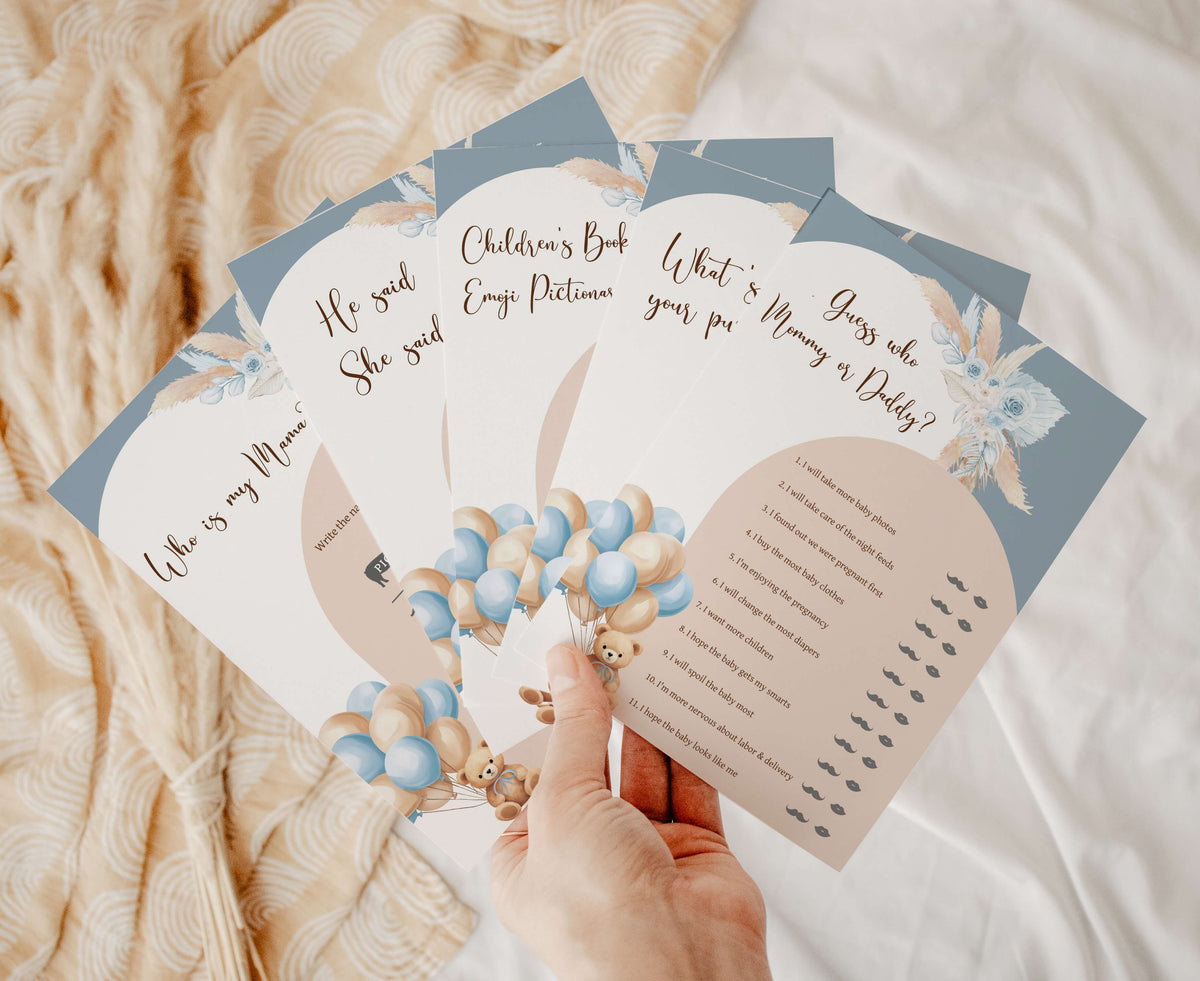 Who is my Mama?
Write the
PI
He said
She said
Children's Book
Emoji
What's
your
Guess who
Mommy or Daddy?
1. I will take more baby photos
2. I will take care of the night feeds
3. I found out we were pregnant first
4. I buy the most baby clothes
5. I'm enjoying the pregnancy
6. I will change the most diapers
7. I want more children
8. I hope the baby gets my smarts
9. I will spoil the baby most
10. I'm more nervous about labor & delivery
11. I hope the baby looks like me